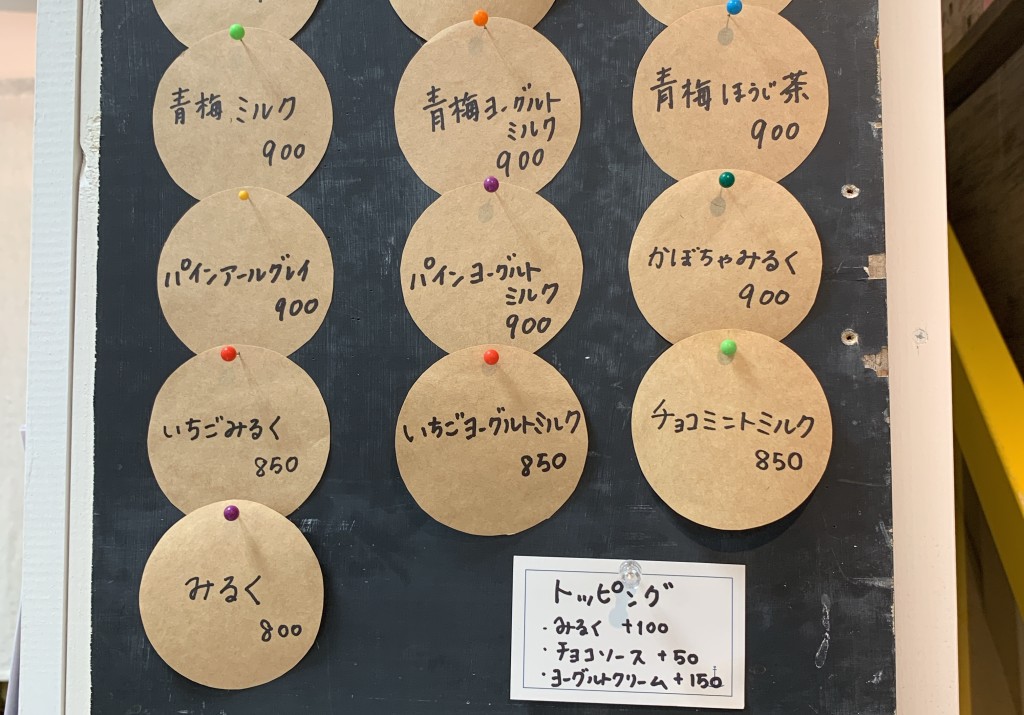 青梅ミルク
900
青梅ヨーグルト
ミルク
900
青梅ほうじ茶
900
パインアールグレイ
900
パインヨーグルト
ミルク
900
かぼちゃみるく
900
いちごみるく
850
いちごヨーグルトミルク
850
チョコミントミルク
850
みるく
800
トッピング
・みるく +100
・チョコソース +50
・ヨーグルトクリーム +150